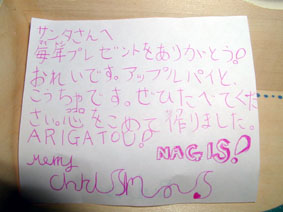 サンタさんへ
毎年プレゼントをありがとう!
おれいです。アップルパイと、
こっちゃです。ぜひたべてくだ
さい。心をこめて作りました。
ARIGATOU!
NAGIS!
Merry
Christmas